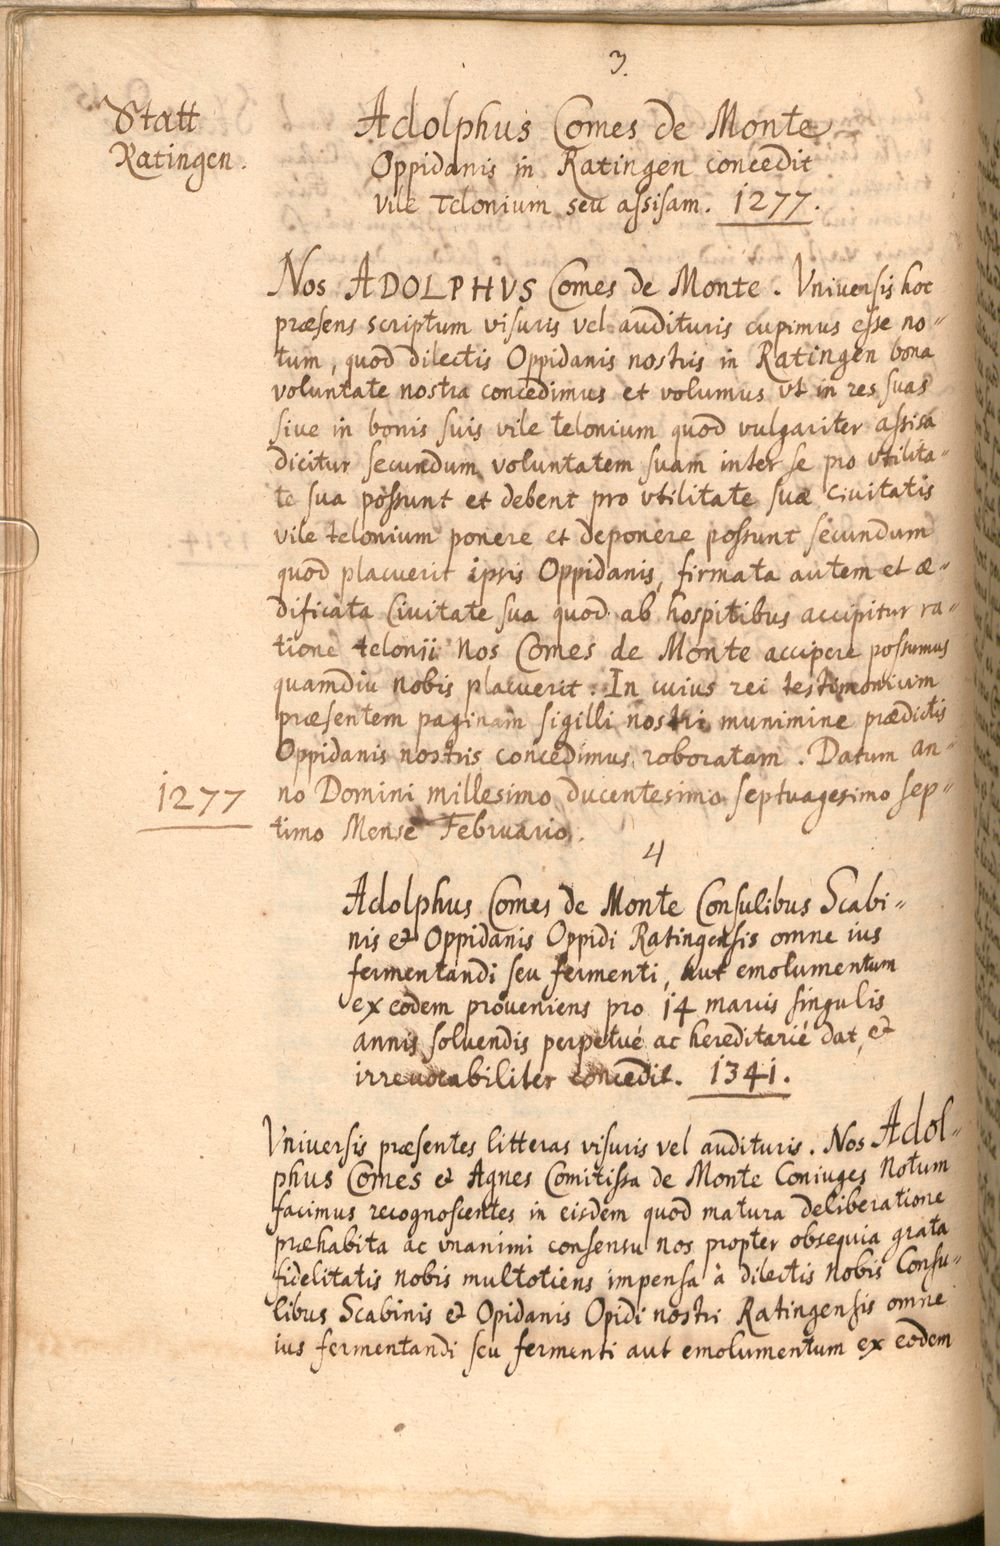 3.
Statt
Ratingen.
Adolphus Comes de Monte
Oppidanis in Ratingen concedit
vile Telonium seu assisam. 1277.
Nos ADOLPHVS Comes de Monte. Vniuersis hoc
præsens scriptum visuris vel audituris cupimus esse no"
tum, quod dilectis Oppidanis nostris in Ratingen bona
voluntate nostra concedimus et volumus vt in res suas
siue in bonis suis vile telonium quod vulgariter assisa
dicitur secundum voluntatem suam inter se pro vtilita"
te sua possunt et debent pro vtilitate suæ Ciuitatis
vile telonium ponere et deponere possunt secundum
quod placuerit ipsis Oppidanis, firmata autem et æ"
dificata Ciuitate sua quod ab hospitibus accipitur ra"
tione telonii nos Comes de Monte accipere possumus
quamdiu nobis placuerit. In cuius rei testimonium
præsentem paginam sigilli nostri munimine prædictis
Oppidanis nostris concedimus roboratam. Datum an"
1277
no Domini millesimo ducentesimo septuagesimo sep"
timo Mense Februario.
4
Adolphus Comes de Monte Consulibus Scabi"
nis et Oppidanis Oppidi Ratingensis omne ius
fermentandi seu fermenti, aut emolumentum
ex eodem proueniens pro 14 marcis singulis
annis soluendis perpetué ac hereditarié dat, et
irreuocabiliter concedit. 1341.
Vniuersis præsentes litteras visuris vel audituris. Nos Adol"
phus Comes et Agnes Comitissa de Monte Coniuges Notum
facimus recognoscentes in eisdem quod matura deliberatione
præhabita ac vnanimi consensu nos propter obsequia grata
fidelitatis nobis multotiens impensa à dilectis nobis Consu"
libus Scabinis et Opidanis Opidi nostri Ratingensis omne
ius fermentandi seu fermenti aut emolumentum ex eodem